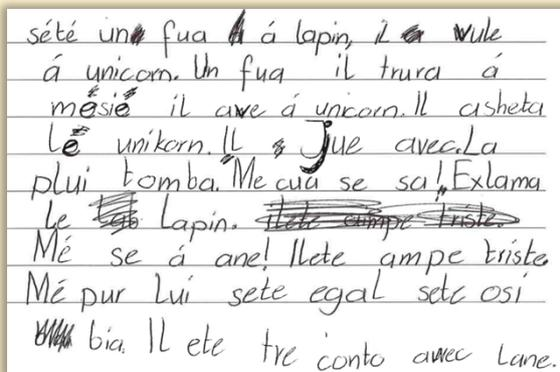 sété un fua á lapin, il vule
á unicorn. Un fua il trura á
mésié il ave á unicorn. Il asheta
Lé unikorn. Il Jue avec. La
plui tomba. "Me cua se sa!" Exlama
Le Lapin.
Mé se á ane! Ilete ampe triste.
Mé pur lui sete egal sete osi
bia. Il ete tre conto avec Lane.